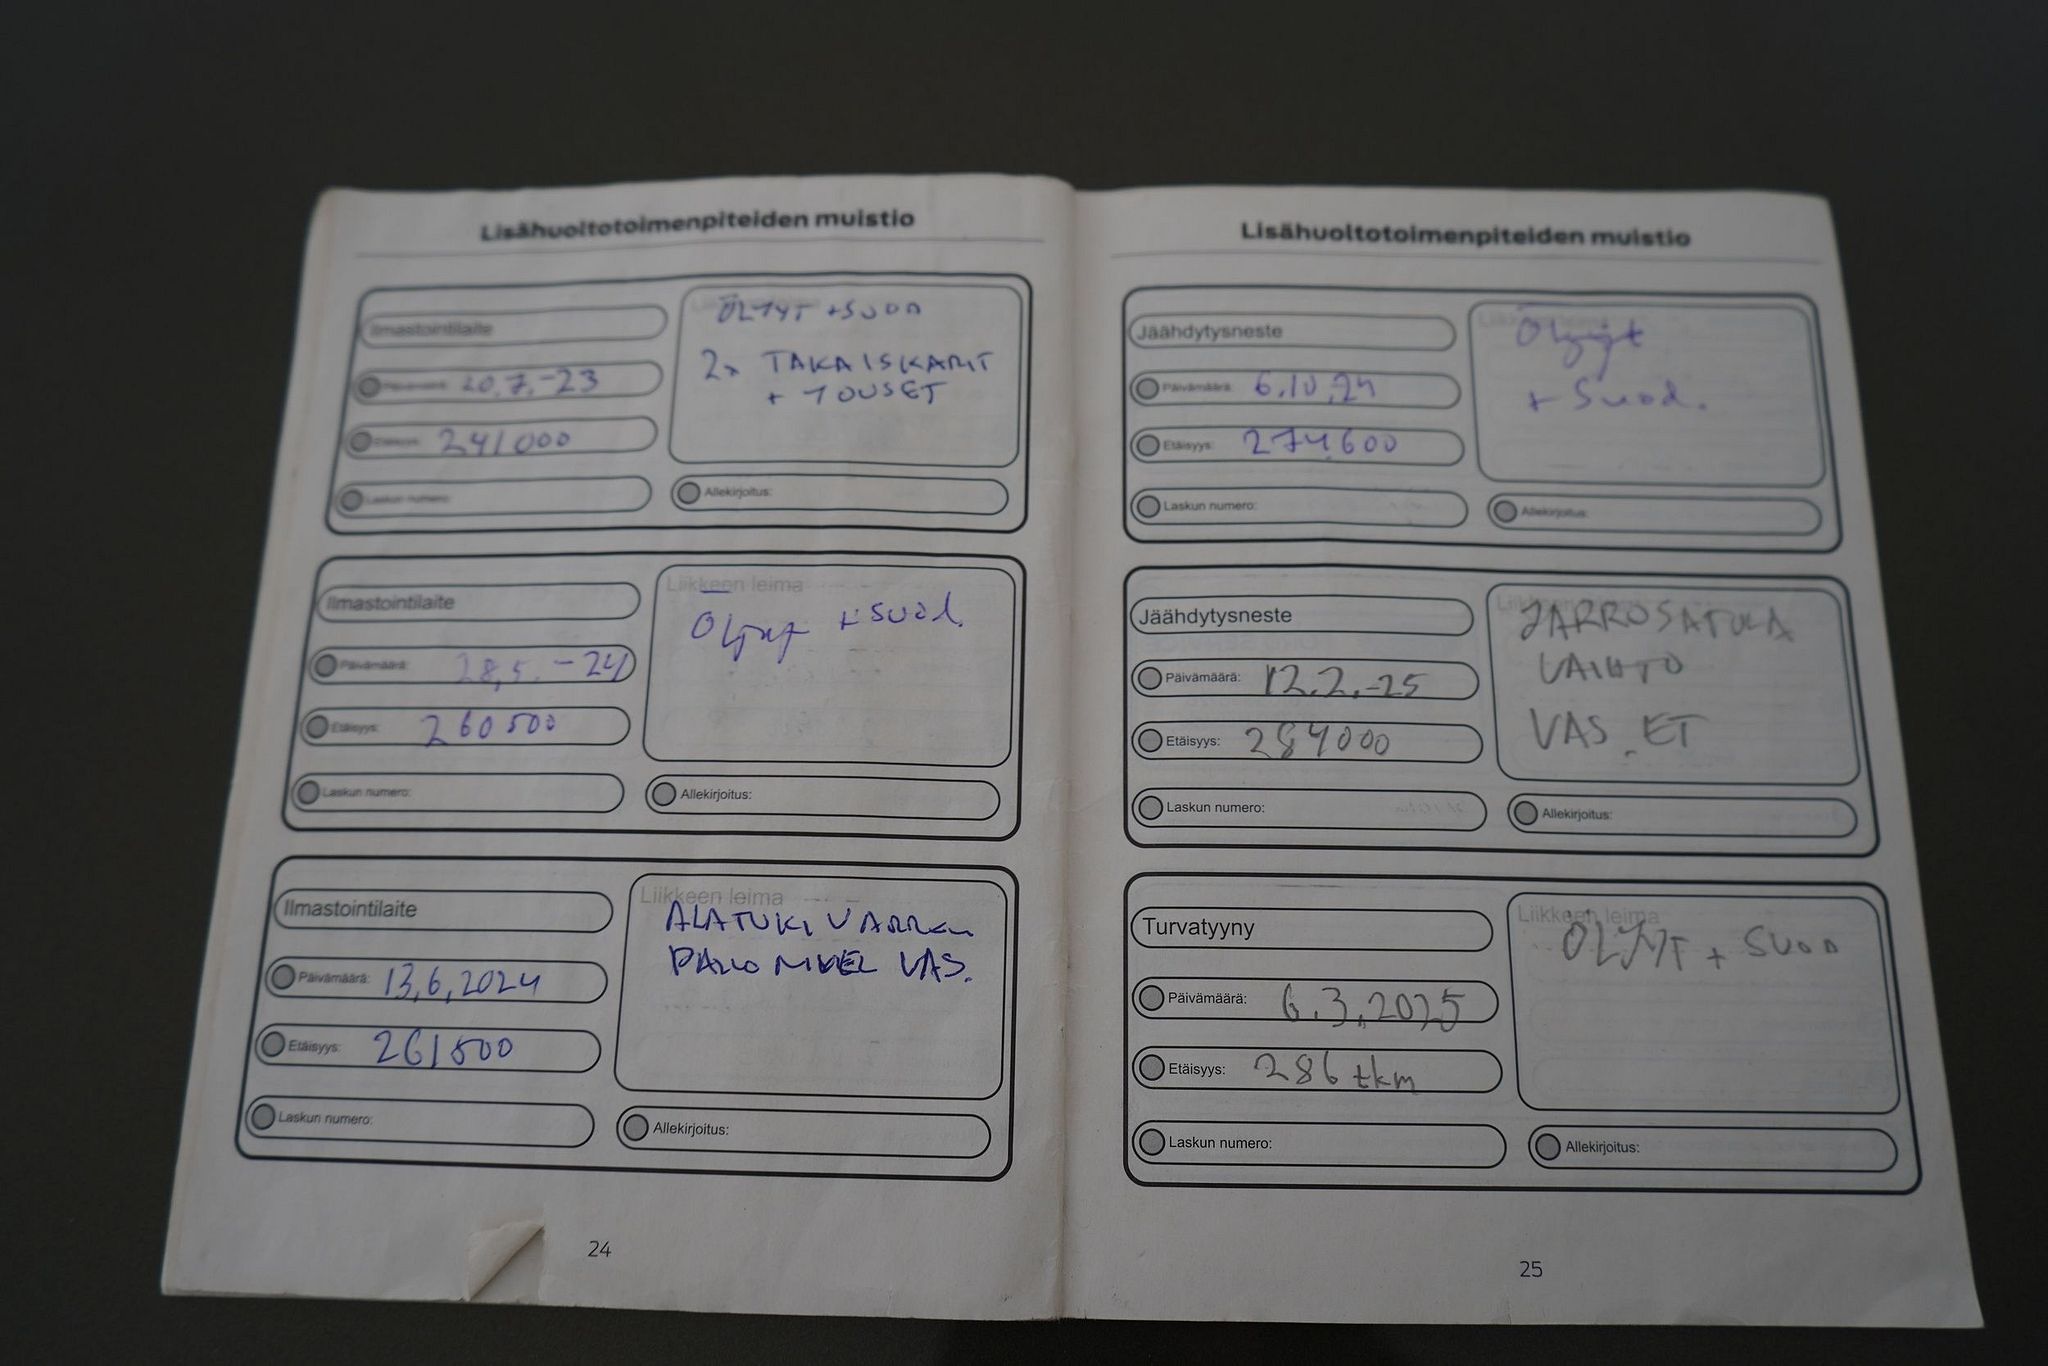 Lisähuoltotoimenpiteiden muistio
Ilmastointilaite
Päivämäärä: 20.7.-23
Etäisyys: 241000
Laskun numero:
ÖLJYT + SUOD
2x TAKAISKARIT
+ JOUSET
Allekirjoitus:
Ilmastointilaite
Päivämäärä: 28.5.-24
Etäisyys: 260500
Laskun numero:
Liikkeen leima
Öljyt + suod.
Allekirjoitus:
Ilmastointilaite
Päivämäärä: 13.6.2024
Etäisyys: 261500
Laskun numero:
Liikkeen leima
ALATUKIVARREN
PALLONIVEL VAS.
Allekirjoitus:
24
Lisähuoltotoimenpiteiden muistio
Jäähdytysneste
Päivämäärä: 6.10.24
Etäisyys: 274.600
Laskun numero:
Liikkeen leima
Öljyt
+ Suod.
Allekirjoitus:
Jäähdytysneste
Päivämäärä: 12.2.-25
Etäisyys: 284000
Laskun numero:
Liikkeen leima
JARROSATULA
VAIHTO
VAS. ET
Allekirjoitus:
Turvatyyny
Päivämäärä: 6.3.2025
Etäisyys: 286 tkm
Laskun numero:
Liikkeen leima
ÖLJYT + SUOD
Allekirjoitus:
25